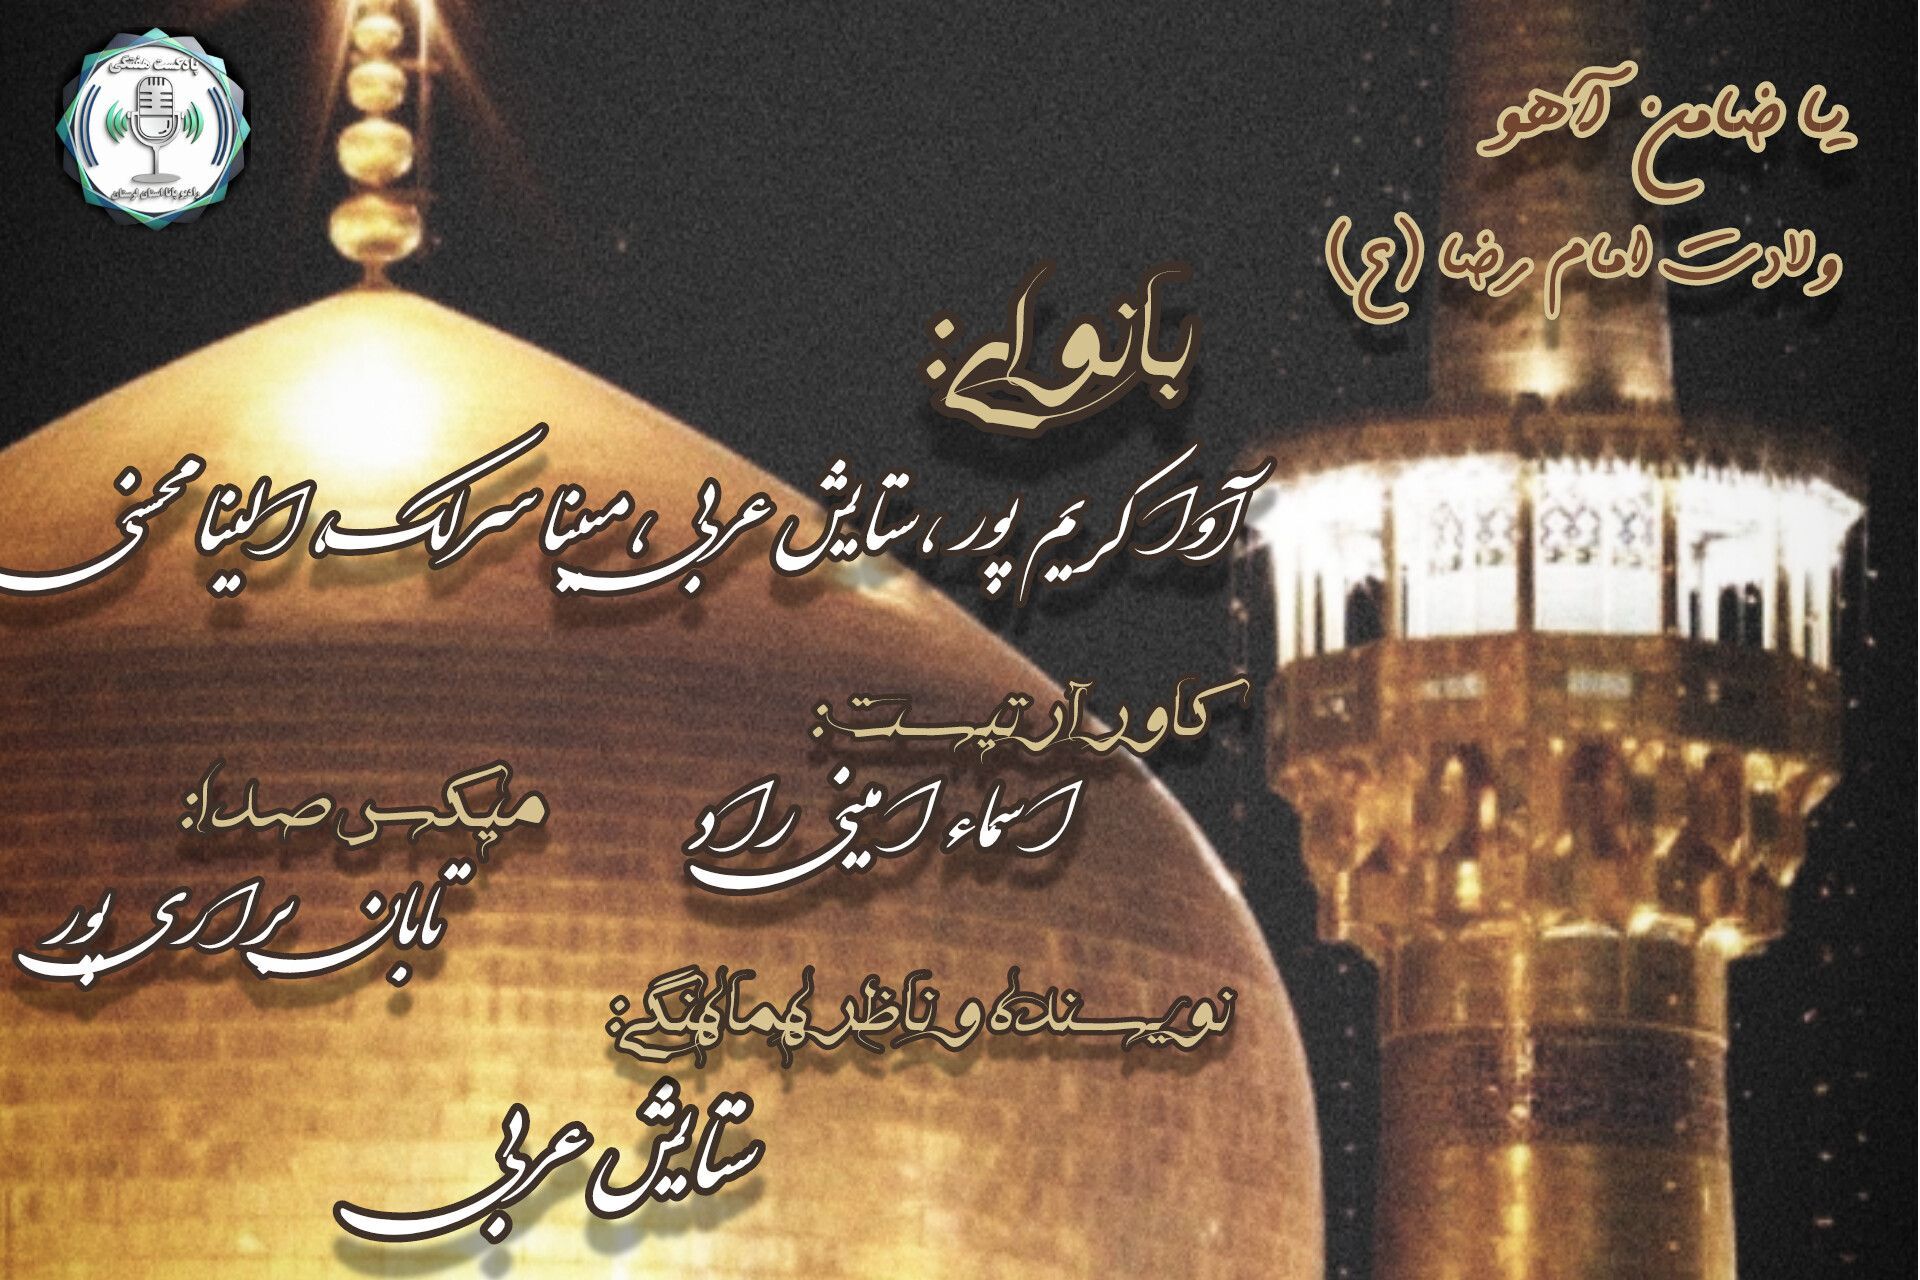 پادکست هفتگی
رادیو پانا استان لرستان
یا ضامن آهو
ولادت امام رضا (ع)
بانوای:
آوا کریم پور ، ستایش عربی ، مبینا سرلک، الینا محسنی
کاور آرتیست:
اسماء امینی راد
میکس صدا:
تابان براری پور
نویسنده و ناظر هماهنگی:
ستایش عربی